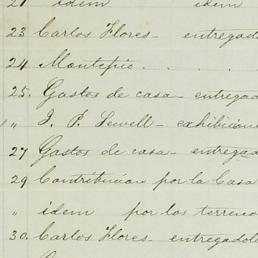 21 idem idem
23 Carlos Flores - entregado
24 Montepío . . . .
25. Gastos de casa - entregad
" J. P. Sewell - exhibicione
27 Gastos de casa - entregad
29 Contribución por la Casa
" idem por los terreno
30. Carlos Flores - entregadole